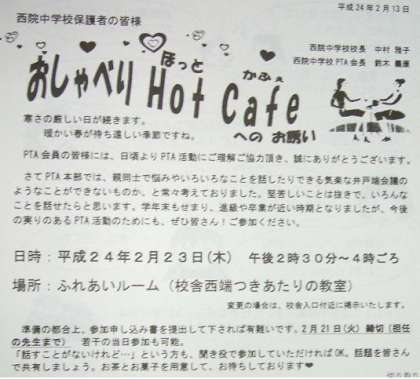 平成24年2月13日
西院中学校保護者の皆様
西院中学校校長 中村 雅子
西院中学校PTA会長 鈴木
ほっと かふぇ
おしゃべり Hot Cafe
への お誘い
寒さの厳しい日が続きます。
暖かい春が待ち遠しい季節ですね。
PTA会員の皆様には、日頃よりPTA活動にご理解ご協力頂き、誠にありがとうございます。
さてPTA本部では、親同士で悩みやいろいろなことを話したりできる気楽な井戸端会議の
ようなことができないものか、と常々考えておりました。堅苦しいことは抜きで、いろんな
ことを話せたらと思います。学年末もせまり、進級や卒業が近い時期となりましたが、今後
の実りのあるPTA活動のためにも、ぜひ皆さん!ご参加ください。
日時:平成24年2月23日(木) 午後2時30分~4時ごろ
場所:ふれあいルーム(校舎西端つきあたりの教室)
変更の場合は、校舎入口付近に掲示いたします。
準備の都合上、参加申し込み書を提出して下されば有難いです。2月21日(火)締切(担任
の先生まで) 若干の当日参加も可能。
「話すことがないけれど…」という方も、聞き役で参加していただければOK。話題を皆さん
で共有しましょう。お茶とお菓子を用意して、お待ちしております♥